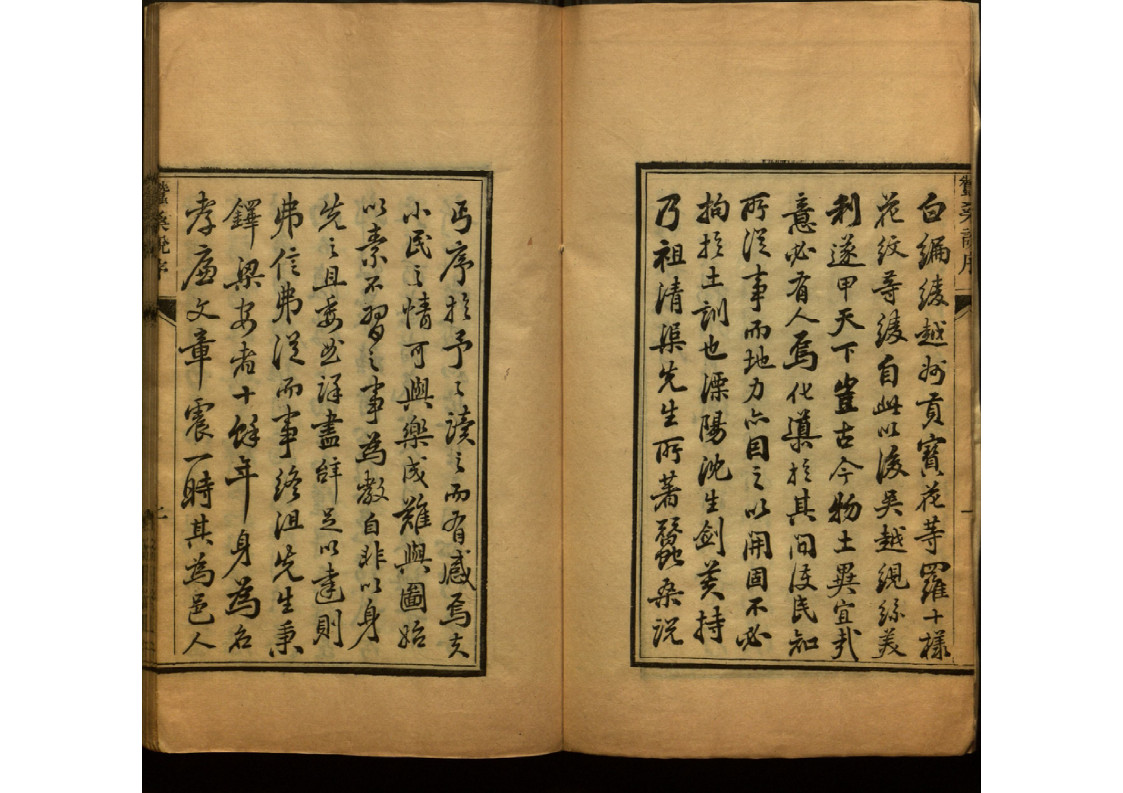 蠶桑說序
白編綾越州貢寶花等羅十樣
花紋等綾自此以後吳越絲美
利遂甲天下豈古今物土異宜哉
意必有人焉化導於其間俾民知
所從事而地力亦因之以開固不必
拘於土訓也溧陽沈生劍芙持
乃祖清渠先生所著蠶桑說
一
丐序於予予讀之而有感焉夫
小民之情可與樂成難與圖始
以素不習之事為教自非以身
先之且委曲詳盡辭足以達則
弗信弗從而事終沮先生秉
鐸梁安者十餘年身為名
孝廉文章震一時其為邑人
蠶桑說序